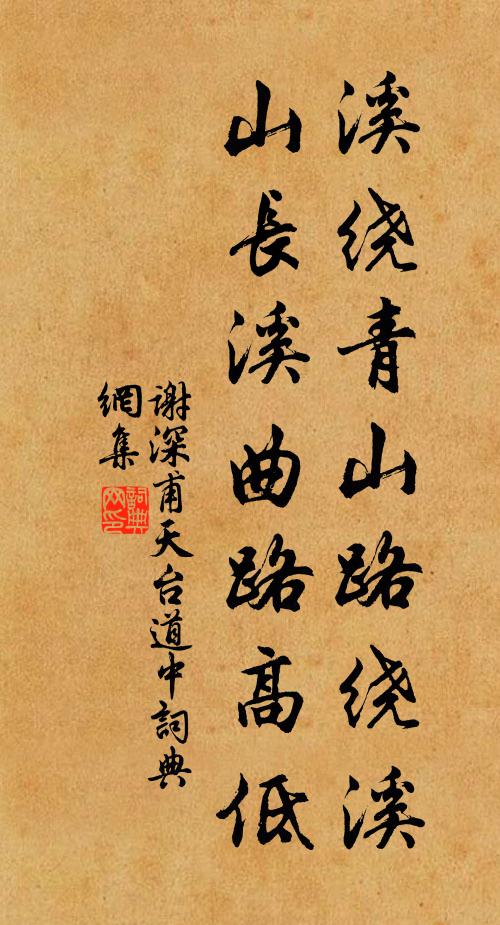 溪绕青山路绕溪
山長溪曲路高低
謝深甫天台道中詞典
網集
詞典网印